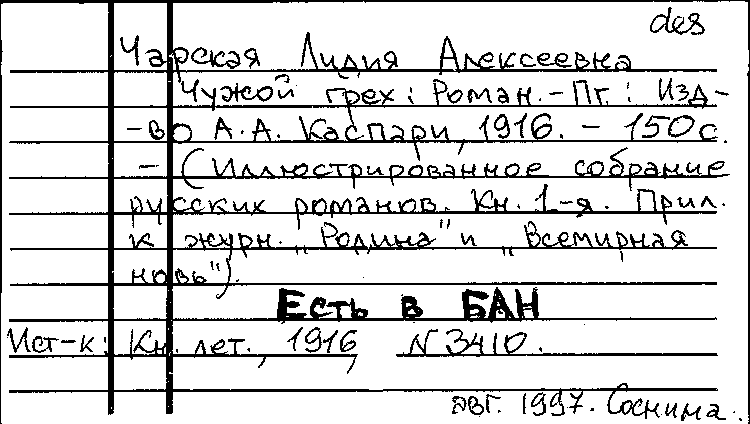 des
Чарская Лидия Алексеевна
Чужой грех: Роман. - Пг.: Изд-
-во А.А. Каспари, 1916. - 150с.
- (Иллюстрированное собрание
русских романов. Кн. 1-я. Прил.
к журн. „Родина" и „Всемирная
новь").
Есть в БАН
Ист-к: Кн. лет., 1916, N 3410.
авг. 1997. Соснина.